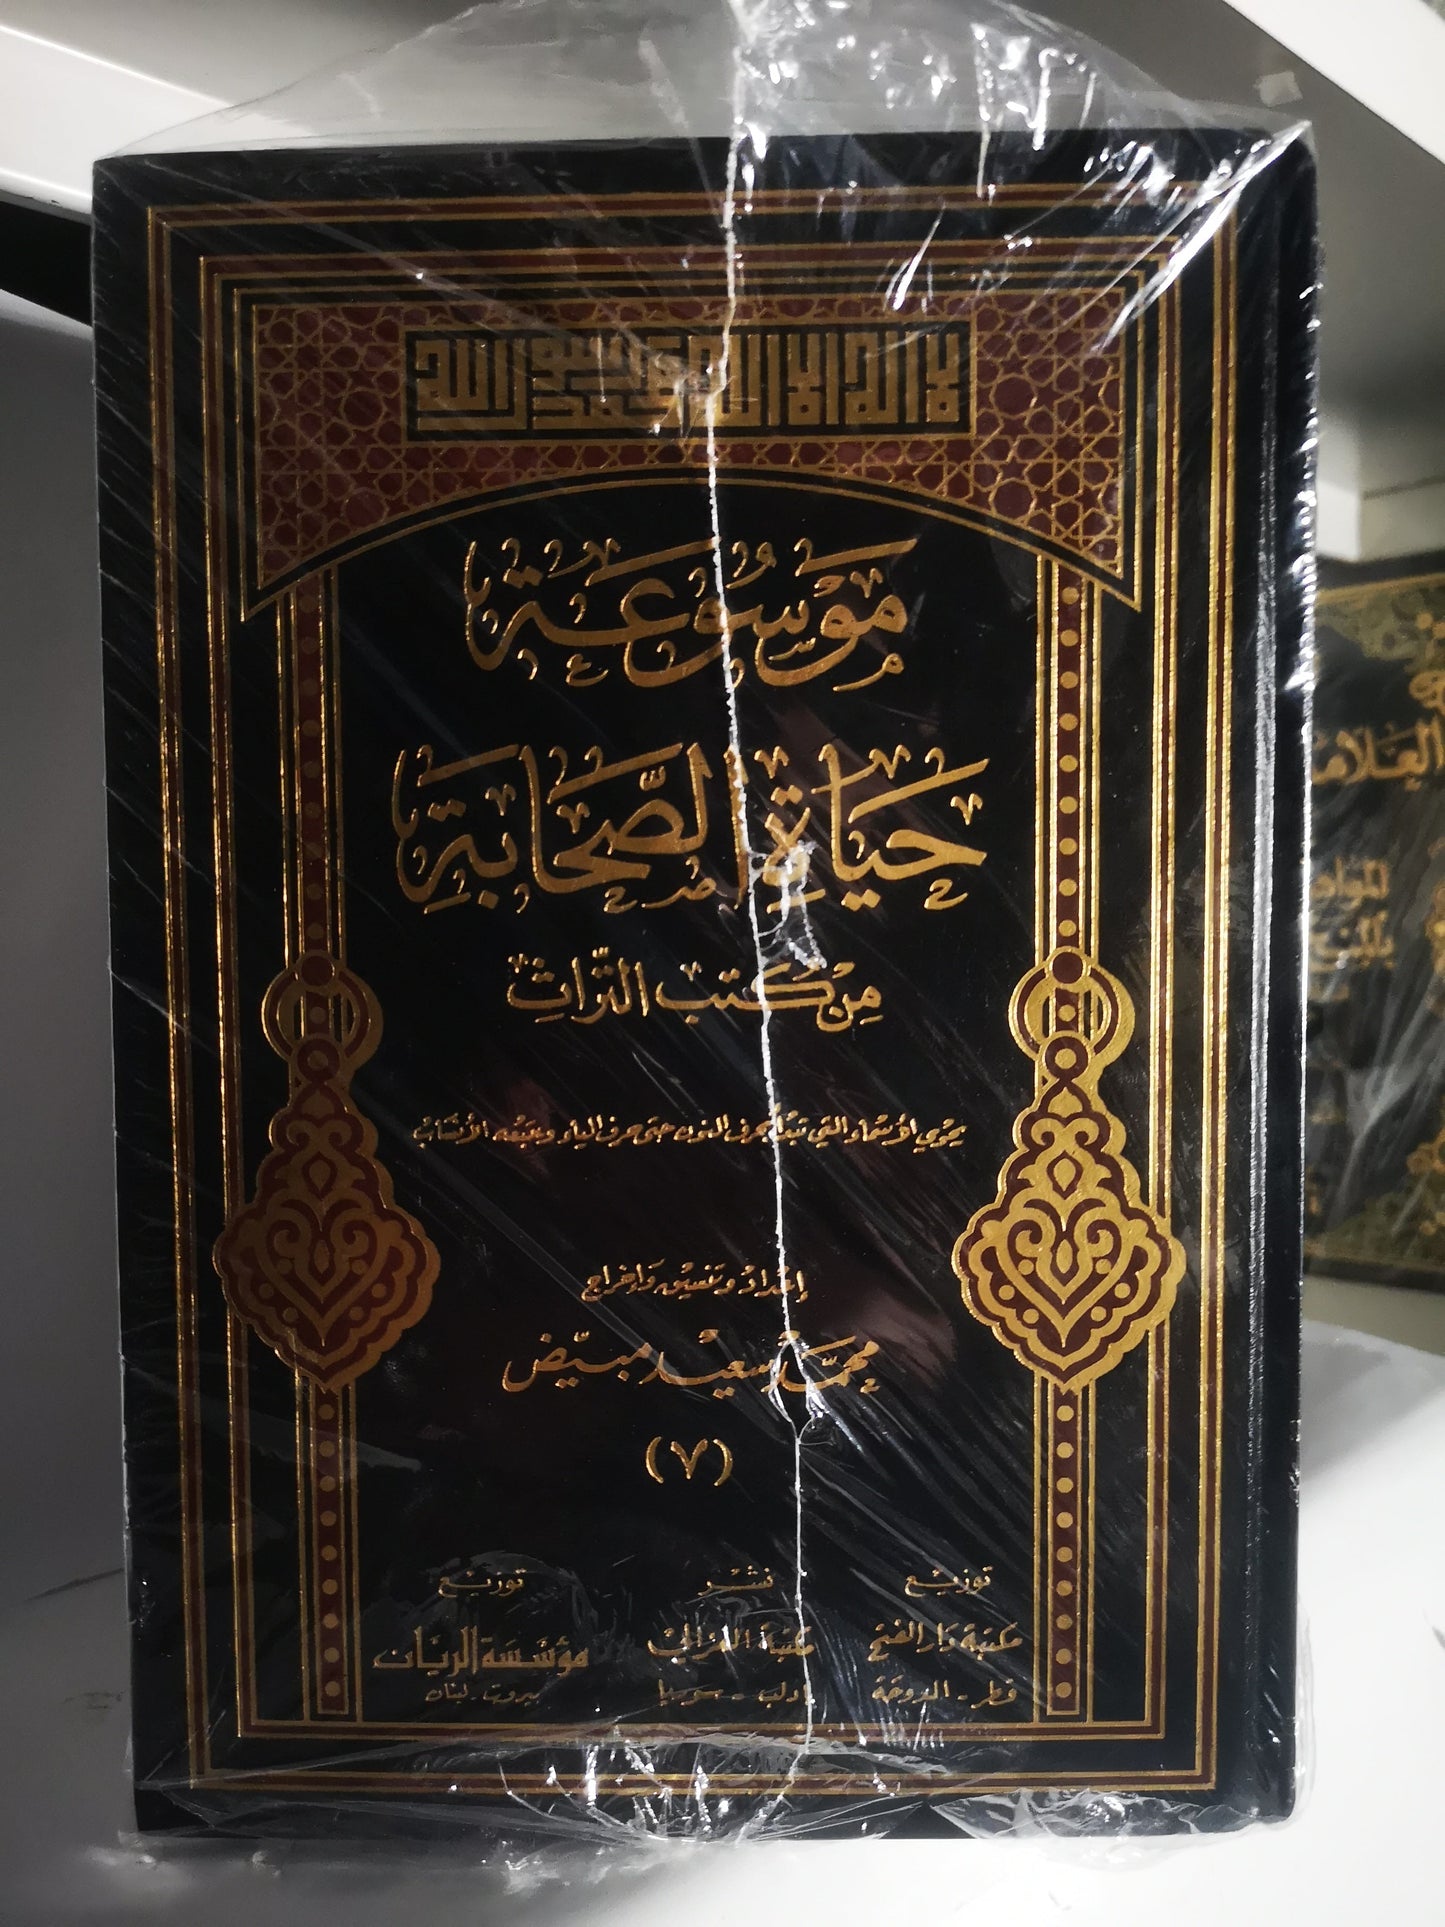 لا إله إلا الله محمد رسول الله
مَوْسُوعَة
حَيَاةِ الصَّحَابَةِ
مِنْ كُتُبِ التُّرَاثِ
يحوي الأسماء التي تبدأ بحرف النون حتى حرف الياء ويتبعه الأنساب
إعْداد وتنسيق وإخراج
محمّد سعيد مبيّض
(٧)
توزيع
مكتبة دار الفتح
قطر - الدوحة
نشر
مكتبة الغزالي
إدلب - سوريا
توزيع
مؤسّسة الريّان
بيروت - لبنان
العلامة